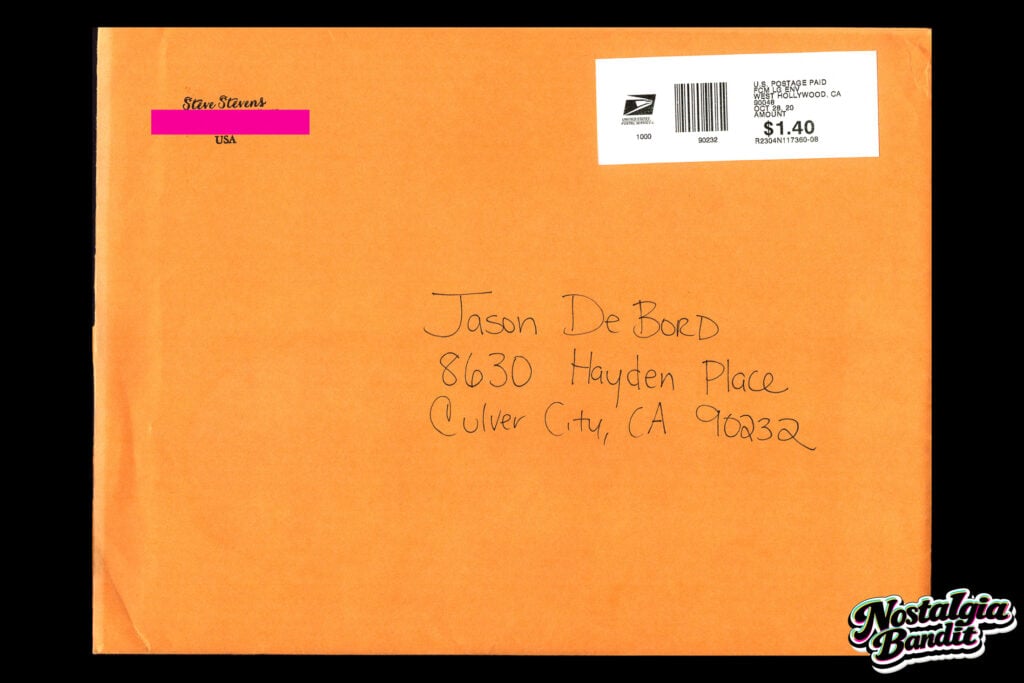 Steve Stevens
USA
UNITED STATES
POSTAL SERVICE
1000
90232
U.S. POSTAGE PAID
FCM LG ENV
WEST HOLLYWOOD, CA
90048
OCT 28, 20
AMOUNT
$1.40
R2304N117360-08
Jason DeBord
8630 Hayden Place
Culver City, CA 90232
Nostalgia
Bandit